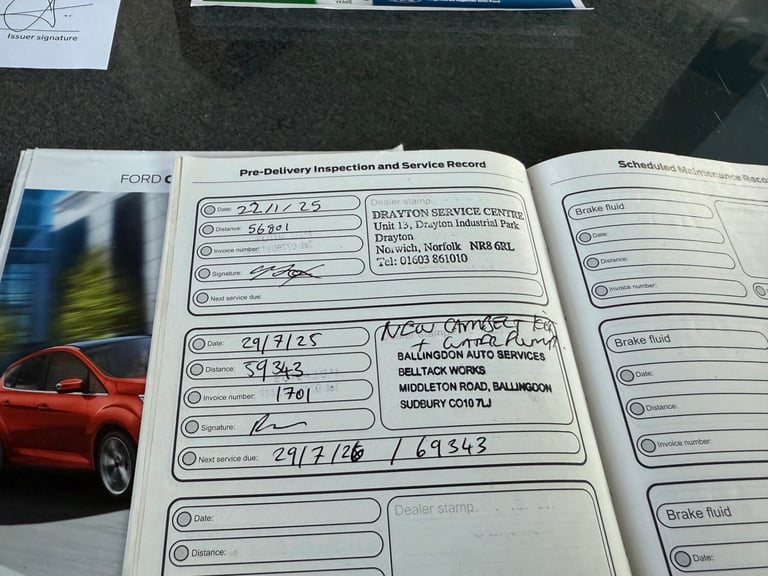 Issuer signature
YEARS
FORD C
Pre-Delivery Inspection and Service Record
Date: 22/1/25
Distance: 56801
Invoice number:
Signature:
Next service due:
Dealer stamp
DRAYTON SERVICE CENTRE
Unit 13, Drayton Industrial Park
Drayton
Norwich, Norfolk NR8 6RL
Tel: 01603 861010
Date: 29/7/25
Distance: 59343
Invoice number: 1701
Signature:
Next service due: 29/7/26 / 69343
NEW CAMBELT KIT
+ WATER PUMP.
BALLINGDON AUTO SERVICES
BELLTACK WORKS
MIDDLETON ROAD, BALLINGDON
SUDBURY CO10 7LJ
Date:
Distance:
Dealer stamp
Scheduled Maintenance Reco
Brake fluid
Date:
Distance:
Invoice number:
Brake fluid
Date:
Distance:
Invoice number:
Brake fluid
Date: